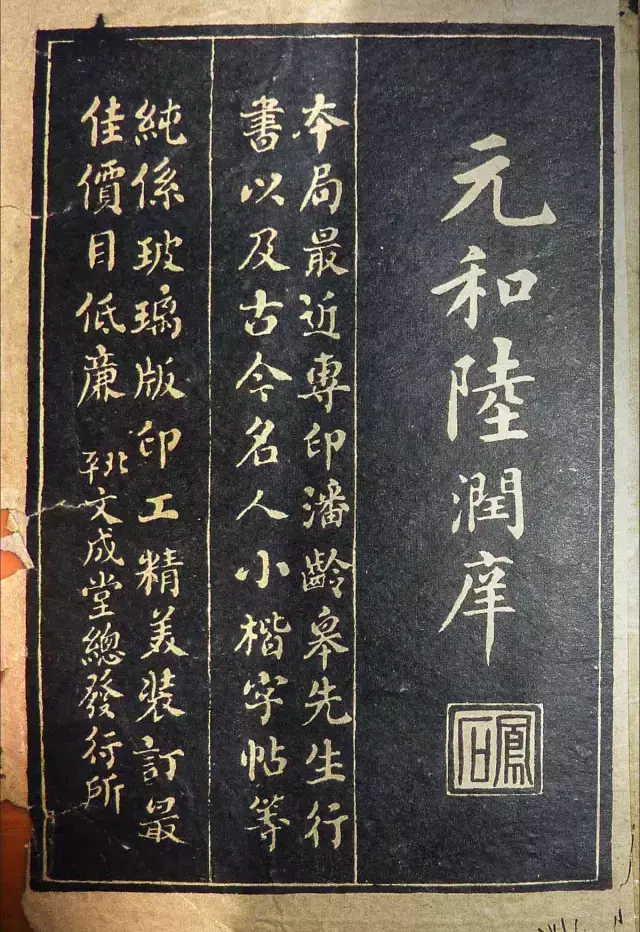 元和陸潤庠
鳳石
本局最近專印潘齡皋先生行
書以及古今名人小楷字帖等
純係玻璃版印工精美裝訂最
佳價目低廉 北平文成堂總發行所